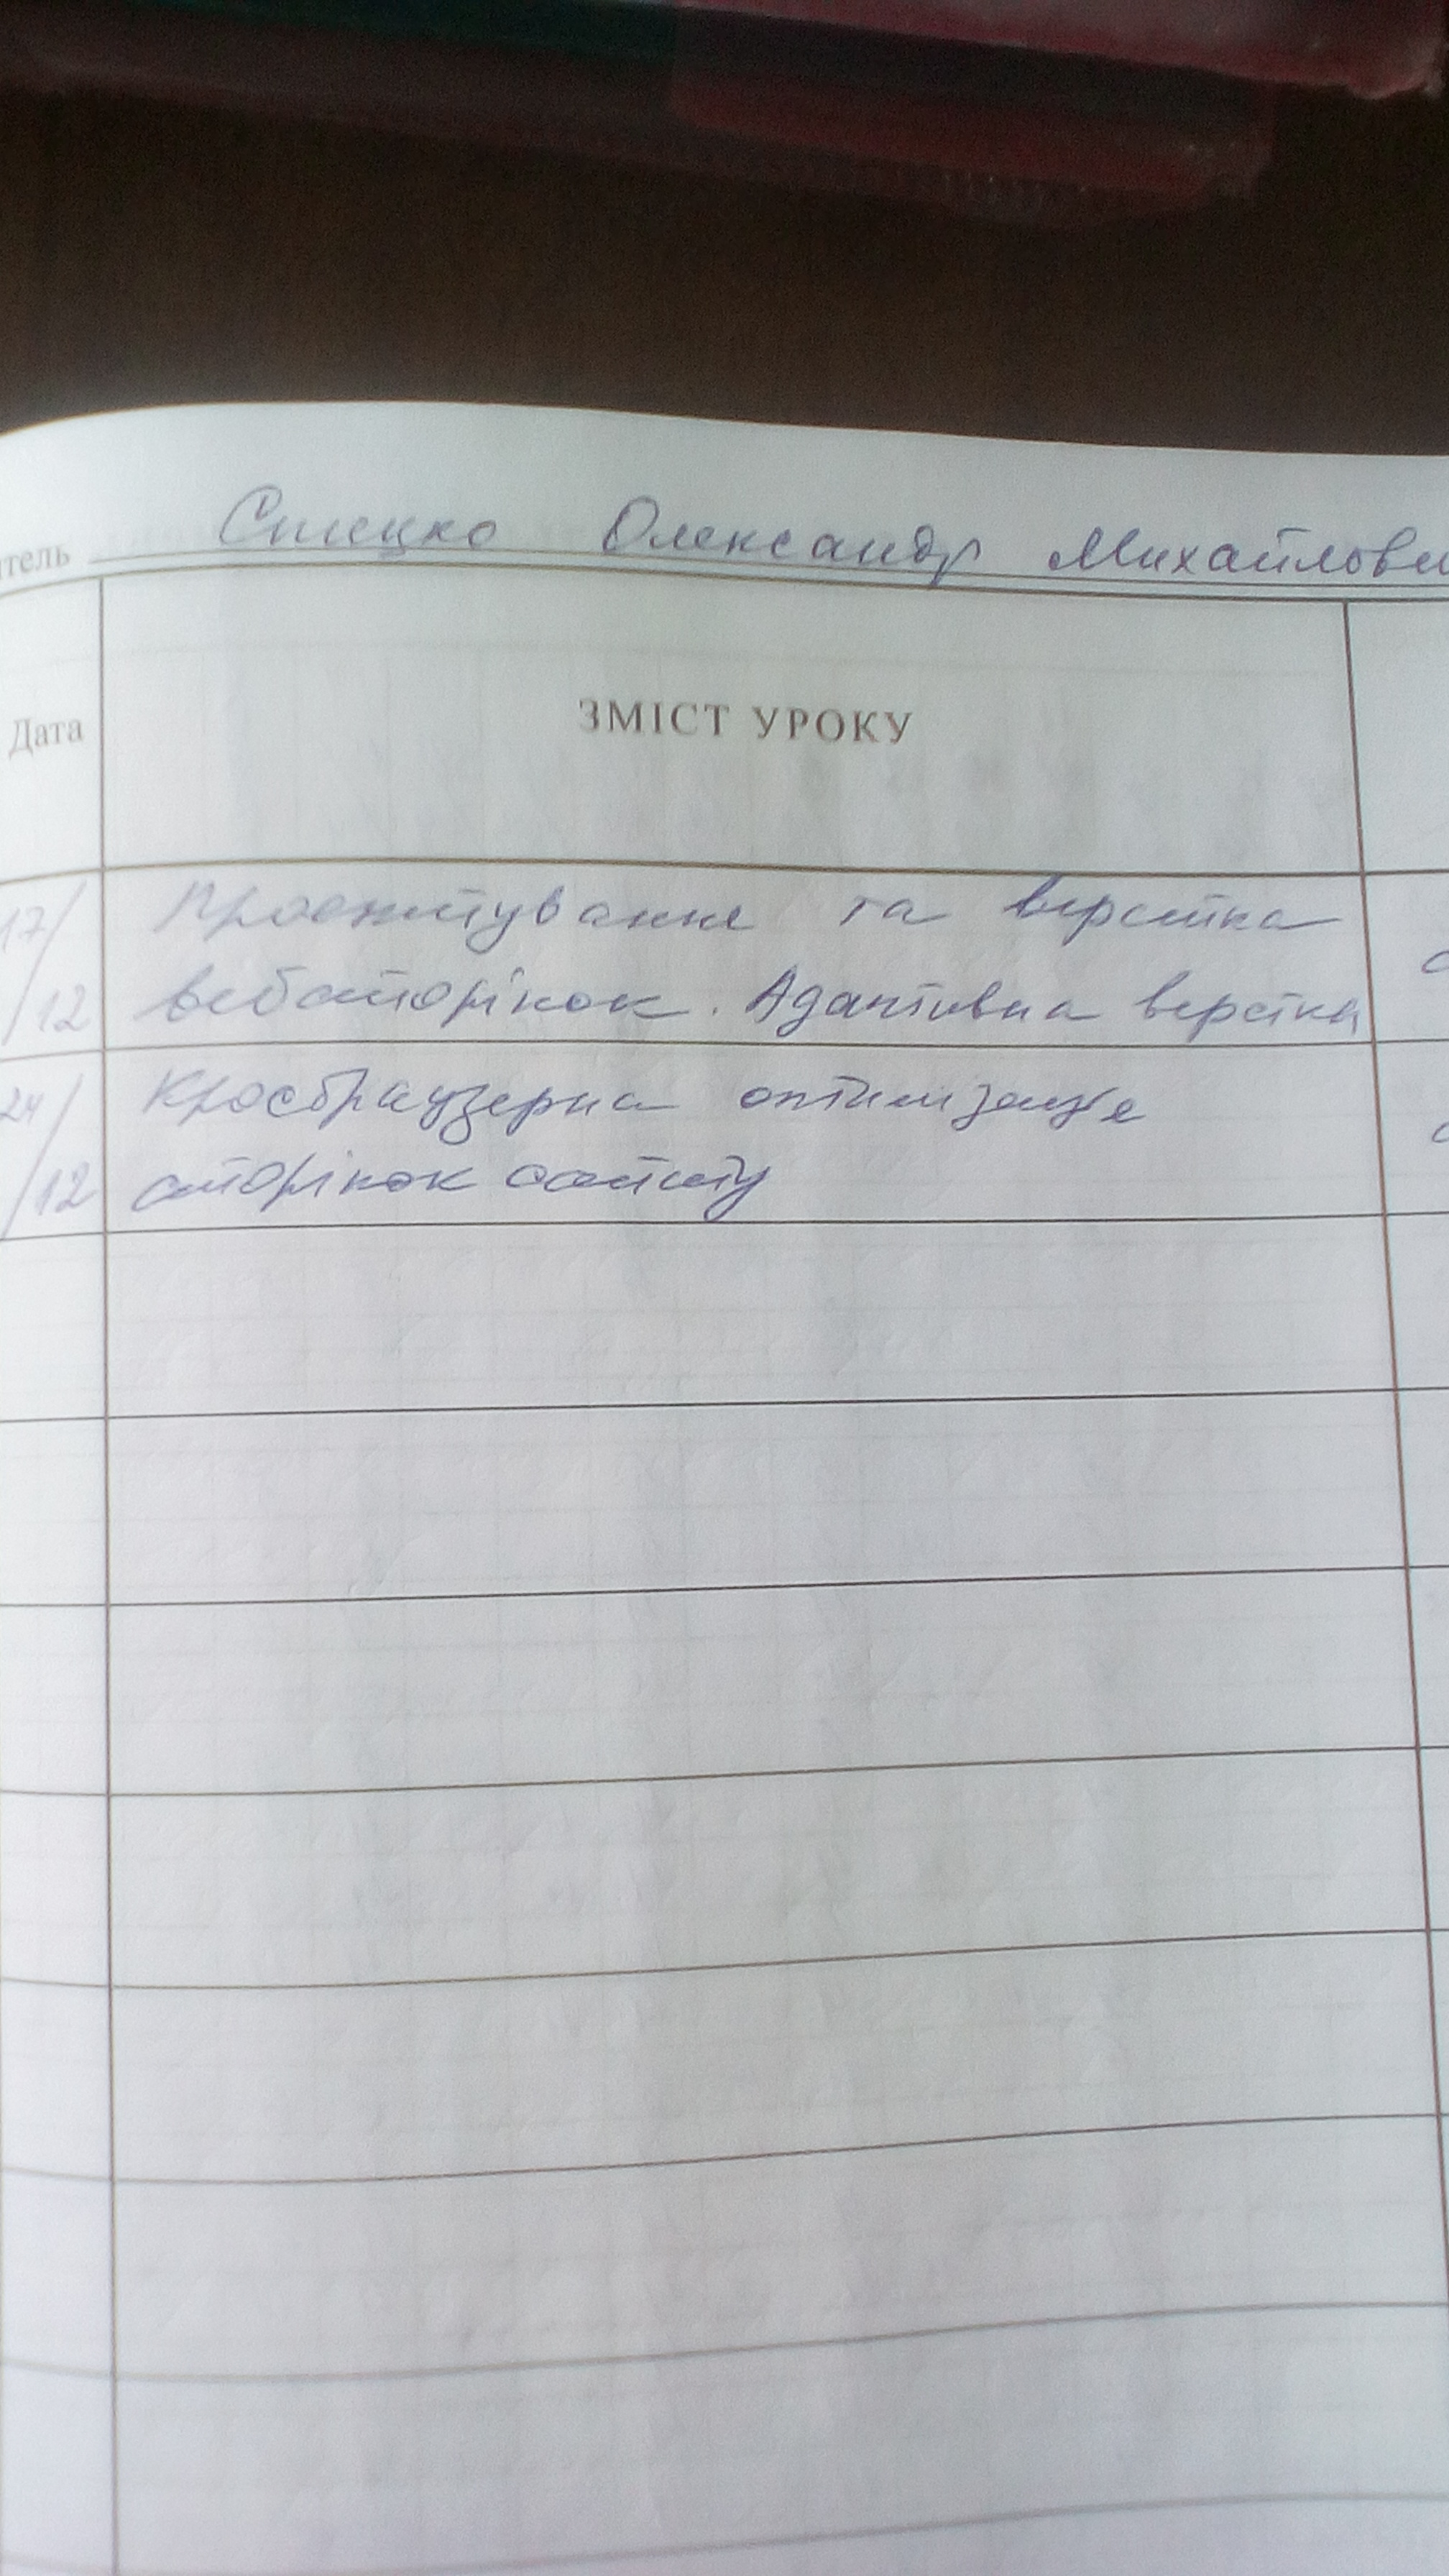 итель Стецко Олександр Михайлови
Дата ЗМІСТ УРОКУ
17/12 Проектування та верстка
вебсторінок. Адаптивна верстка
24/12 Кросбраузерна оптимізація
сторінок сайту